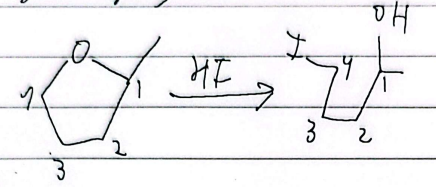 OH
O HI I 4
4 1 1
3 2 3 2